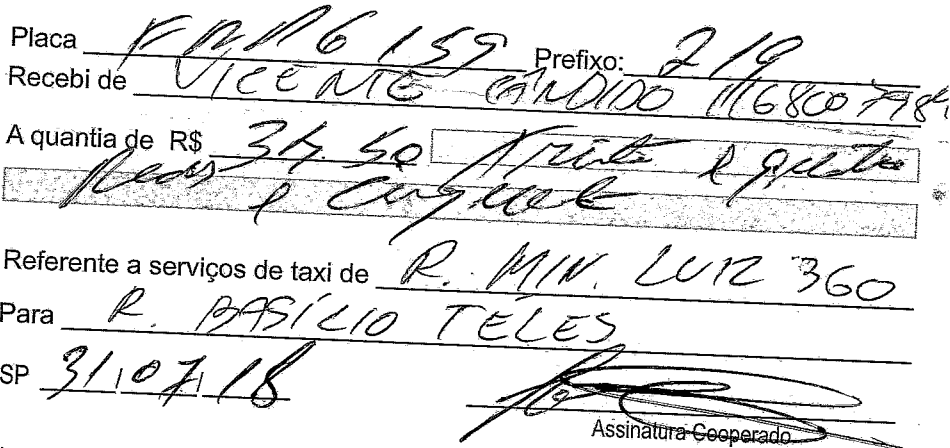 Placa FNR 6159 Prefixo: 219
Recebi de VICENTE CÂNDIDO
A quantia de R$ 34.50 Trinta e quatro
Reais e cinquenta
Referente a serviços de taxi de R. MIN. LUIZ 360
Para R. BASÍLIO TELES
SP 31 07 18
Assinatura Cooperado